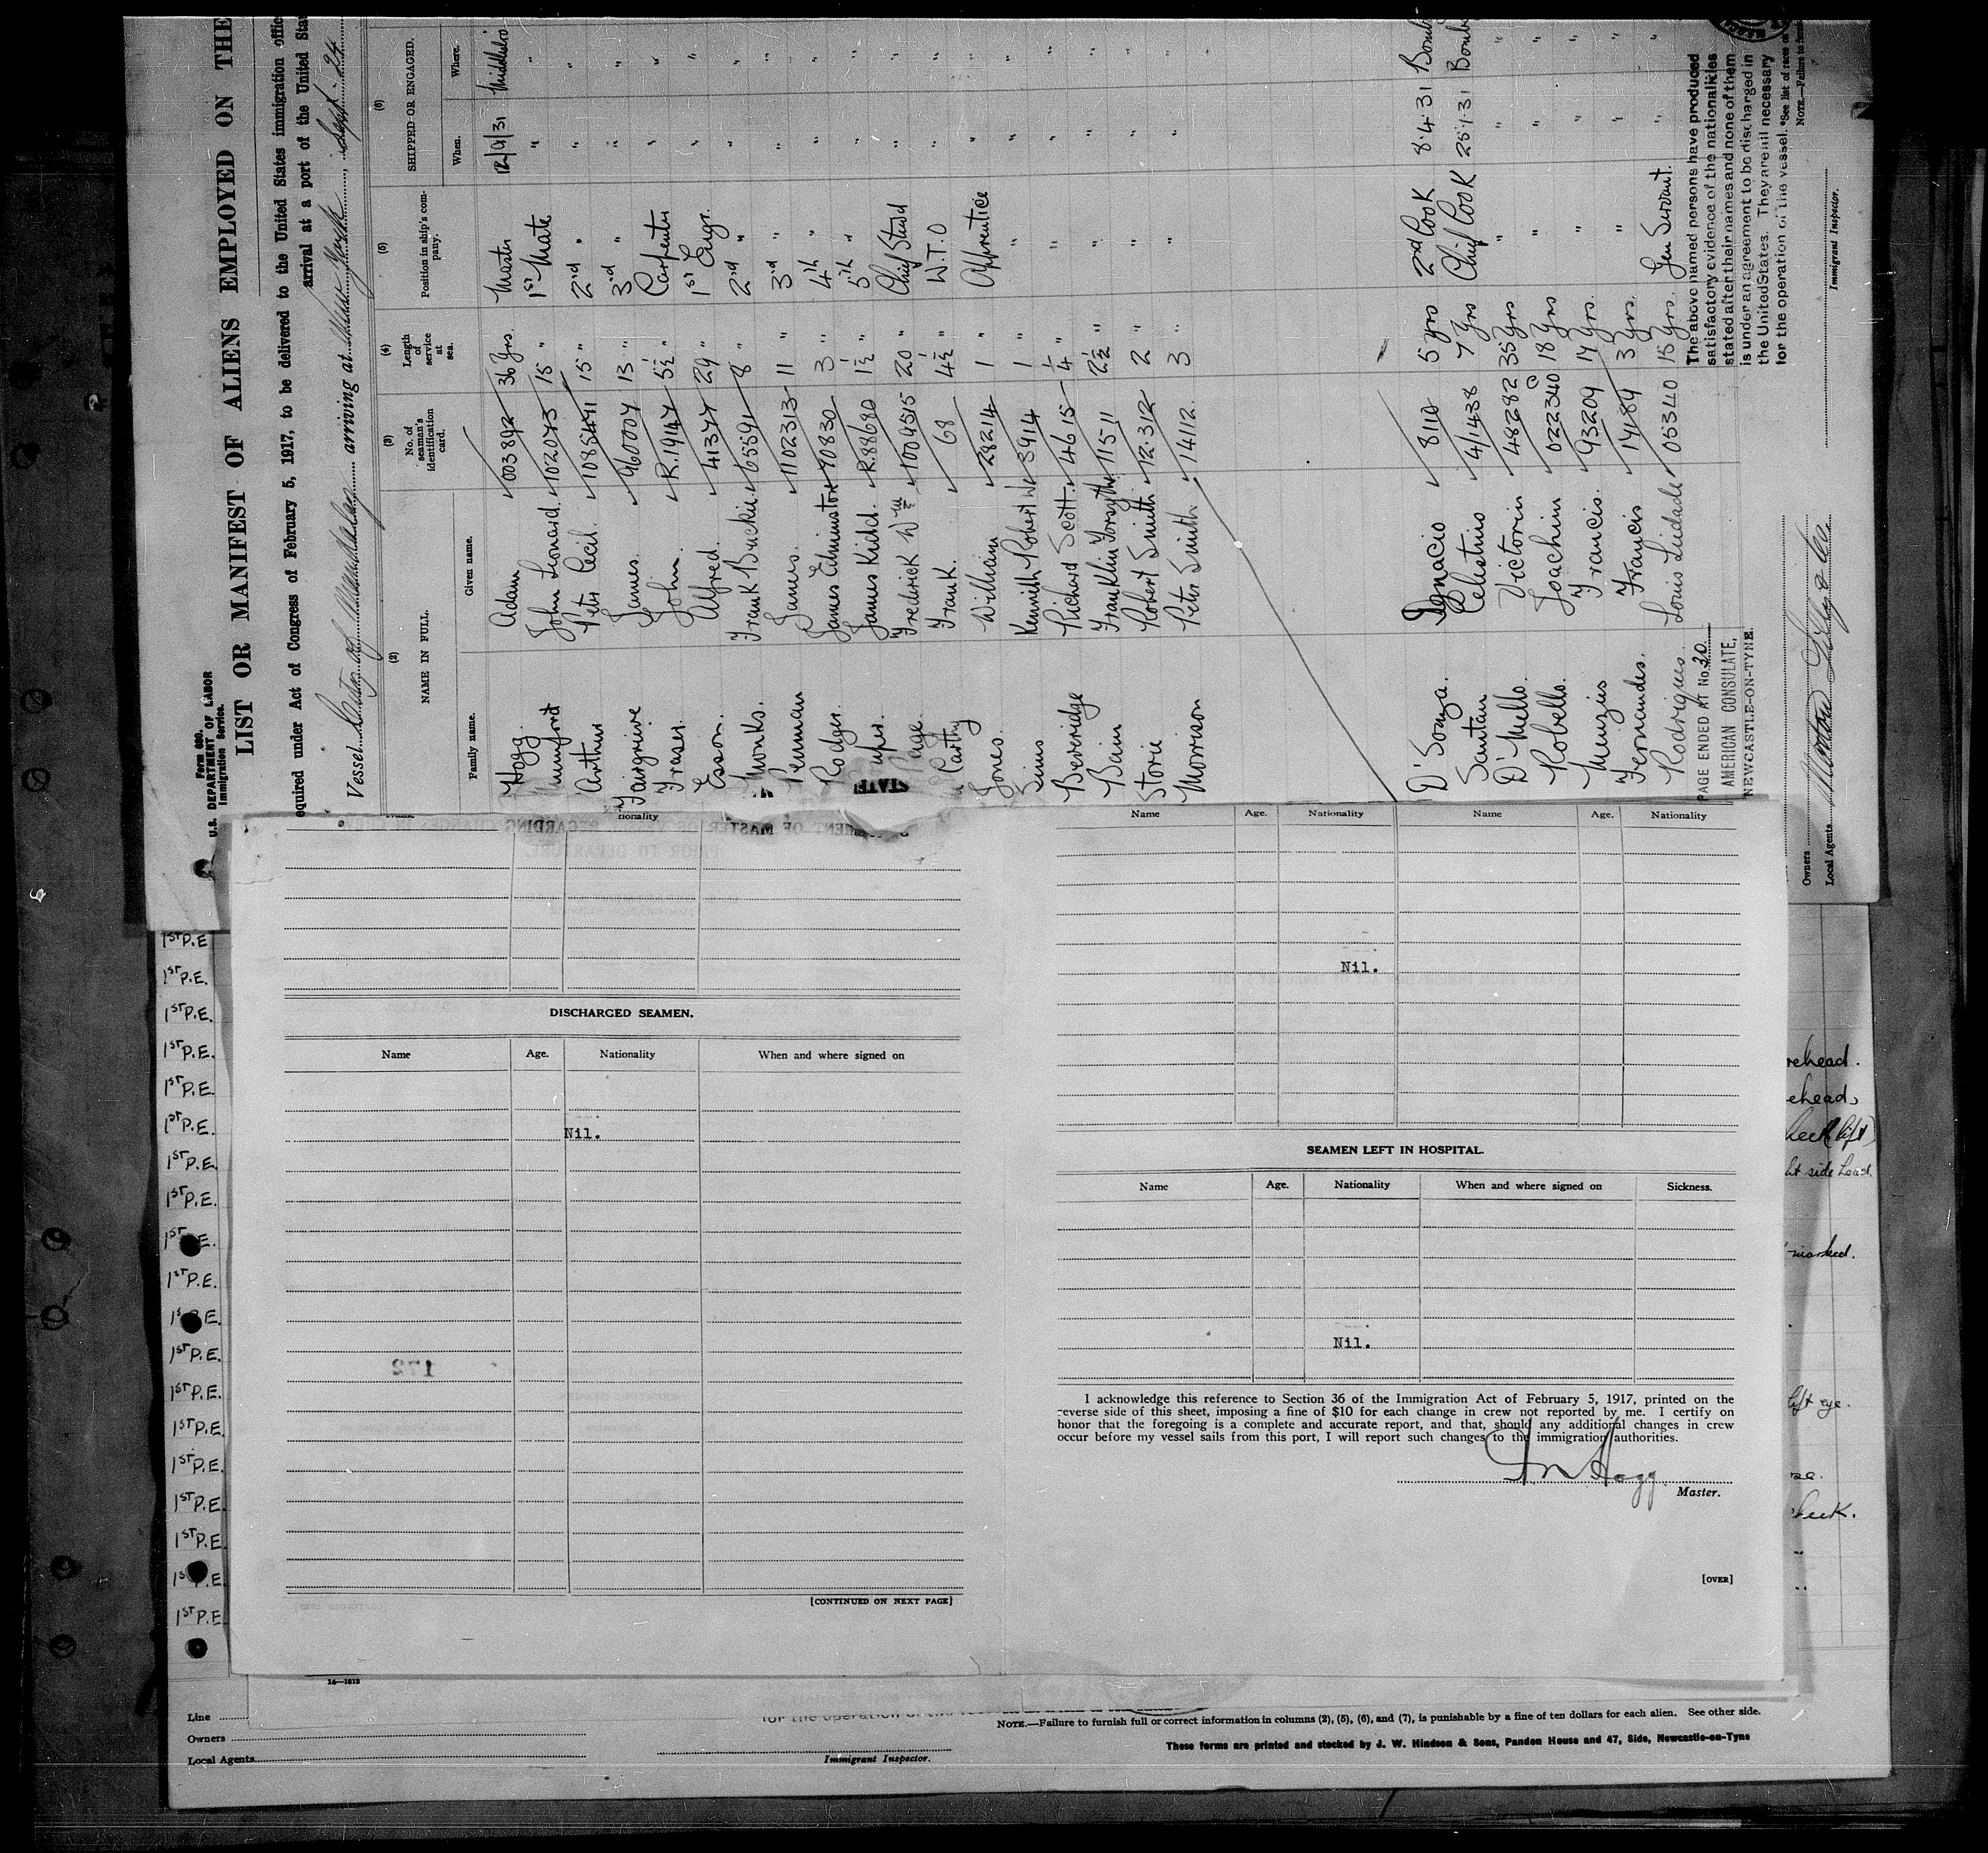 Form 680.
U.S. DEPARTMENT OF LABOR
Immigration Service.
LIST OR MANIFEST OF ALIENS EMPLOYED ON THE
equired under Act of Congress of February 5, 1917, to be delivered to the United States immigration offic
arrival at a port of the United Sta
Vessel City of Mandalay arriving at New York, Sept. 24
(2) (3) (4) (5) (6)
NAME IN FULL. No. of seaman's identification card. Length of service at sea. Position in ship's company. SHIPPED OR ENGAGED.
Family name. Given name. When. Where.
Hogg Adam 003892 36 Yrs. Master 12/9/31 Middlesbro
Mumford John Leonard 102073 15 " 1st Mate " "
Arthur Peter Cecil. 1085491 15 " 2nd " " "
Fairgrieve James. 960007 13 " 3rd " " "
Fraser. John. R.1947 5½ " Carpenter " "
Esson. Alfred. 41377 29 " 1st Engr. " "
Monks. Frank Buckie. 65591 8 " 2nd " " "
Penman James. 1102313 11 " 3rd " " "
Rodger. James Edminston 70830 3 " 4th " " "
James Kidd. R.88680 1½ " 5th " " "
Page. Frederick Wm 1009315 20 " Chief Stewd " "
Carthy Frank. 68 4½ " W.T.O " "
Jones. William 28214 1 " Apprentice " "
Sims Kenneth Robert W. 3914 1 " " " "
Beveridge Richard Scott. 4615 ¼ " " " "
Bain Franklin Forsyth 11571 2½ " " " "
Storie Robert Smith 12.312 2 " " " "
Morrison Peter Smith 14112. 3 " " " "
D'Souza. Ignacio 8110 5 yrs 2nd Cook 8.4.31 Bomb
Santan Celestino 4/1438 7 Yrs Chief Cook 25.1.31 Bomb
D'Mello. Victorin 48282 35 Yrs " " "
Robello. Joachim 022340 18 Yrs " " "
Menzis Francis. 93209 14 yrs. " " "
Fernandes. Francis 14189 3 yrs. " " "
Rodrigues. Louis Liudade 05340 15 Yrs. Gen Servant. " "
PAGE ENDED AT No. 30.
AMERICAN CONSULATE,
NEWCASTLE-ON-TYNE.
The above named persons have produced
satisfactory evidence of the nationalities
stated after their names and none of them
is under an agreement to be discharged in
the United States. They are all necessary
for the operation of the vessel.
*See list of races on
NOTE.—Failure to furn
Immigrant Inspector.
Owners
Local Agents
Name Age. Nationality Name Age. Nationality
Nil.
DISCHARGED SEAMEN.
Name Age. Nationality When and where signed on
Nil.
[CONTINUED ON NEXT PAGE]
SEAMEN LEFT IN HOSPITAL.
Name Age. Nationality When and where signed on Sickness.
Nil.
I acknowledge this reference to Section 36 of the Immigration Act of February 5, 1917, printed on the
reverse side of this sheet, imposing a fine of $10 for each change in crew not reported by me. I certify on
honor that the foregoing is a complete and accurate report, and that, should any additional changes in crew
occur before my vessel sails from this port, I will report such changes to the immigration authorities.
Hogg
Master.
[OVER]
172
1st P.E
1st P.E.
1st P.E.
1st P.E.
1st P.E.
1st P.E.
1st P.E.
1st P.E.
1st E.
1st P.E.
1s E.
1st P.E.
1st P.E.
1st P.E.
1st P.E.
1st P.E.
1st P.E.
1s .E
1st P.E
rehead.
ehead,
heek (left)
ht side head
marked.
left eye.
heek.
16—1813
Line
Owners
Local Agents
for the operation of the
Immigrant Inspector.
NOTE.—Failure to furnish full or correct information in columns (2), (5), (6), and (7), is punishable by a fine of ten dollars for each alien. See other side.
These forms are printed and stocked by J. W. Hindson & Sons, Pandon House and 47, Side, Newcastle-on-Tyne